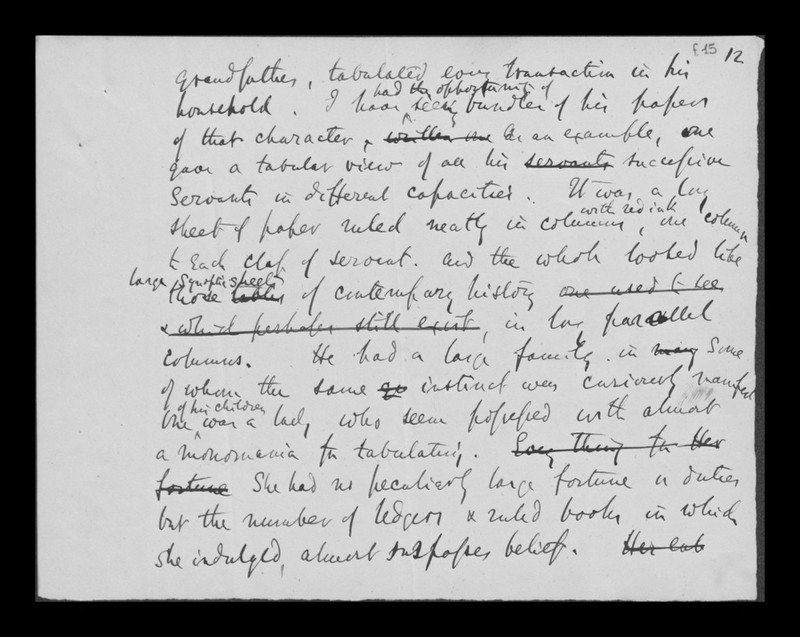 f15 12
grandfather, tabulated every transaction in his
had the opportunity of
household. I have seeing bundles of his papers
of that character, & written one As an example, one
gave a tabular view of all his servants successive
Servants in different capacities. It was a long
with red ink
sheet of paper ruled neatly in columns, one column
to Each class of servant. and the whole looked like
large synoptic sheets
those tables of contemporary history one used to see
& which perhaps still exist, in long parallel
columns. He had a large family. in many Some
of whom the same instinct was curiously manifest
of his children
One was a lady who seem possessed with almost
a monomania for tabulating. Every thing for Her
fortune She had no peculiarly large fortune or duties
but the number of ledgers & ruled books in which
she indulged, almost surpasses belief. Her